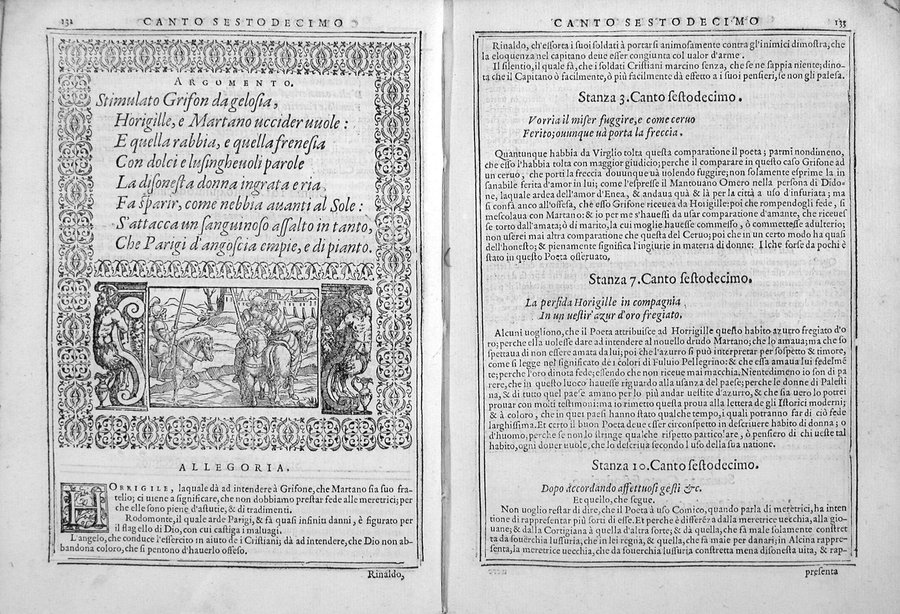 132
CANTO SESTODECIMO
ARGOMENTO.
Stimulato Grifon da gelosia,
Horigille, e Martano uccider uuole:
E quella rabbia, e quella frenesia
Con dolci e lusingheuoli parole
La disonesta donna ingrata e ria,
Fa sparir, come nebbia auanti al Sole:
S'attacca un sanguinoso assalto in tanto,
Che Parigi d'angoscia empie, e di pianto.
ALLEGORIA.
HORRIGILE, laquale dà ad intendere à Grifone, che Martano sia suo fra-
tello; ci uiene a significare, che non dobbiamo prestar fede alle meretrici; per
che elle sono piene d'astutie, & di tradimenti.
Rodomonte, il quale arde Parigi, & fà quasi infiniti danni, è figurato per
il flagello di Dio, con cui castiga i maluagi.
L'angelo, che conduce l'essercito in aiuto de i Cristiani; dà ad intendere, che Dio non ab-
bandona coloro, che si pentono d'hauerlo offeso.
Rinaldo,
CANTO SESTODECIMO
133
Rinaldo, ch'essorta i suoi soldati à portarsi animosamente contra gl'inimici dimostra, che
la eloquenza nel capitano deue esser congiunta col ualor d'arme.
Il silentio, il quale fà, che i soldati Cristiani marcino senza, che se ne sappia niente; dino-
ta che il Capitano ò facilmente, ò più facilmente dà effetto a i suoi pensieri, se non gli palesa.
Stanza 3. Canto sestodecimo.
Vorria il miser fuggire, e come ceruo
Ferito; ouunque uà porta la freccia.
Quantunque habbia da Virglio tolta questa comparatione il poeta; parmi nondimeno,
che esso l'habbia tolta con maggior giudicio; perche il comparare in questo caso Grifone ad
un ceruo, che porti la freccia douunque uà uolendo fuggire; non solamente esprime la in
sanabile ferita d'amor in lui; come l'espresse il Mantouano Omero nella persona di Dido-
ne, laquale ardea dell'amor d'Enea, & andaua quà & là per la città a uso d'infuriata; ma
si confà anco all'offesa, chè esso Grifone riceuea da Hoiigille: poi che rompendogli fede, si
mescolaua con Martano: & io per me s'hauessi da usar comparatione d'amante, che riceuess
se torto dall'amata; ò di marito, la cui moglie hauesse commesso, ò commettesse adulterio;
non userei mai altra comparatione che questa del Ceruo; poi che in un certo modo ha quasi
dell'honesto; & pienamente significa l'ingiurie in materia di donne: Il che forse da pochi è
stato in questo Poeta osseruato,
Stanza 7. Canto sestodecimo.
La perfida Horigille in compagnia
In un uestir'azur d'oro fregiato.
Alcuni uogliono, che il Poeta attribuisce ad Horrigille questo habito azurro fregiato d'o
ro; perche ella uolesse dare ad intendere al nouello drudo Martano; che lo amaua; ma che so
spettaua di non essere amata da lui; poi che l'azurro si può interpretar per sospetto & timore,
come si legge nel significato de i colori di Fuluio Pellegrino: & che essa amaua lui fedelmē
te; perche l'oro dinota fede; essendo che non riceue mai macchia. Nientedimeno io son di pa
rere, che in questo luoco hauesse riguardo alla usanza del paese; perche le donne di Palesti
na, & di tutto quel paese amano per lo più andar uestite d'azurro, & che sia uero lo potrei
prouar con molti testimoni. ma io rimetto questa proua alla lettera de gli Istorici moderni;
& à coloro, che in quei paesi hanno stato qualche tempo, i quali potranno far di ciò fede
larghissima. Et certo il buon Poeta deue esser circonspetto in descriuere habito di donna; o
d'huomo, perche se non lo stringe qualche rispetto particolare, ò pensiero di chi ueste tal
habito, ogni douer uuole, che lo descriua secondo l'uso della sua natione.
Stanza 10. Canto sestodecimo.
Dopo accordando affettuosi gesti &c.
Et quello, che segue.
Non uoglio restar di dire, che il Poeta à uso Comico, quando parla di meretrici, ha inten
tione di rappresentar più sorti di esse. Et perche è differēza dalla meretrice uecchia, alla gio-
uane; & dalla Cortigiana à quella d'altra sorte; & dà quella, che fà male solamente costret-
ta da souerchia lussuria, che in lei regna, & quella, che fà male per danari; in Alcina rappre-
senta, la meretrice uecchia, che da souerchia lussuria constretta mena disonesta uita, & rap-
presenta